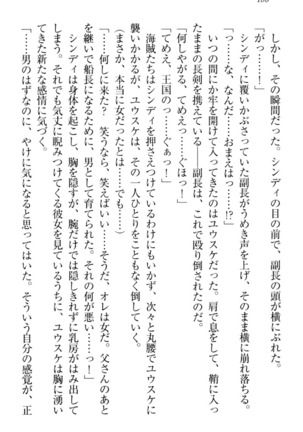 100
しかし、その瞬間だった。シンディの目の前で、副長の頭が横にぶれた。
「がっ……！」
シンディに覆いかぶさっていた副長がうめき声を上げ、そのまま横に崩れ落ちる。
「っ……な、なんだ……おまえはっ……!?」
いつの間にか牢を開けて入ってきたのはユウスケだった。肩で息をして、鞘に入っ
たままの長剣を携えている――副長は、これで殴り倒されたのだ。
「何しやがる、てめえっ……ぐほっ！」
「てめえ、王国の……ぐぁっ！」
海賊たちはシンディを押さえつけているわけにもいかず、次々と丸腰でユウスケに
襲いかかるが、ユウスケは、その一人ひとりをこともなく倒していく。
（まさか、本当に女だったとは……でも……）
「……何しに来た？　笑うなら、笑えばいい……そうだ、オレは女だ。父さんのあと
を継いで船長になるために、男として育てられた。それの何が悪い……っ！」
シンディは身体を起こし、胸を隠すが、腕だけでは隠しきれずに乳房がはみ出して
しまう。それでも気丈に睨みつけてくる彼女を見ているうちに、ユウスケは胸に湧い
てきた新たな感情に気づく。
「……男のはずなのに、やけに気になると思ってはいた。そういう自分の感覚が、正